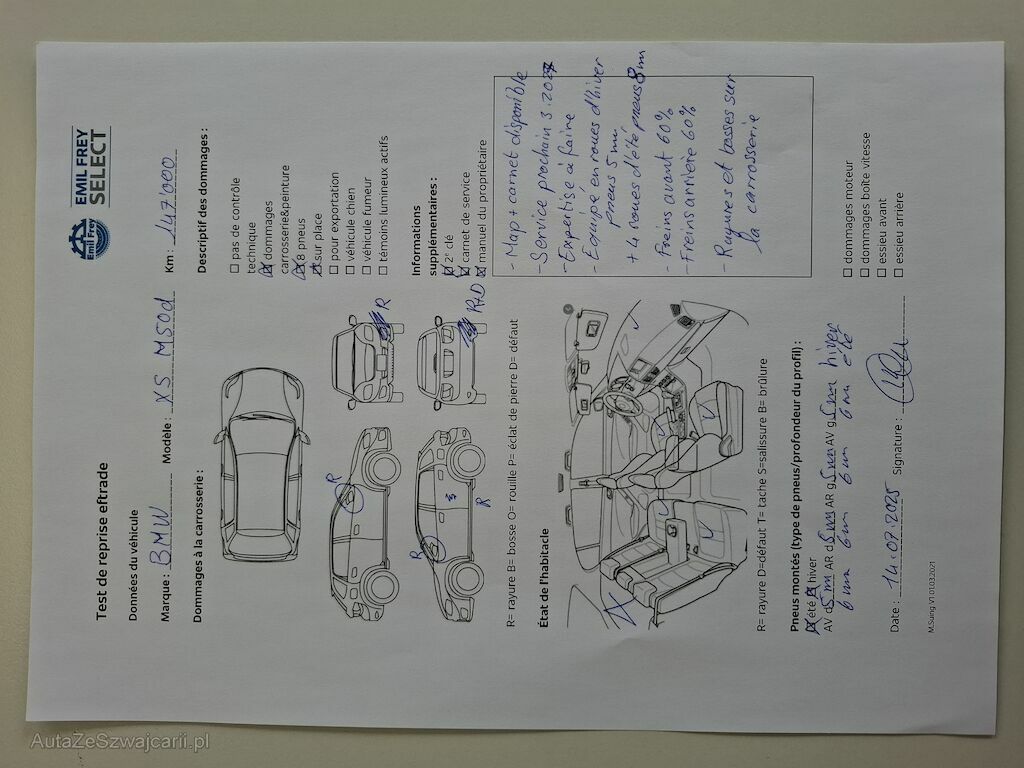 EMIL FREY
SELECT
Emil Frey
Test de reprise eftrade
Données du véhicule
Marque : BMW Modèle : X5 M50d Km : 147'000
Dommages à la carrosserie :
Descriptif des dommages :
☐ pas de contrôle
technique
☒ dommages
carrosserie&peinture
☒ 8 pneus
☒ sur place
☐ pour exportation
☐ véhicule chien
☐ véhicule fumeur
☐ témoins lumineux actifs
Informations
supplémentaires :
☒ 2° clé
☒ carnet de service
☒ manuel du propriétaire
R
R
R
R
R+D
R= rayure B= bosse O= rouille P= éclat de pierre D= défaut
État de l'habitacle
- Map + carnet disponible
- Service prochain 3.2027
- Expertise à faire
- Equipé en roues d'hiver
pneus 5 mm
+ 4 roues d'été pneus 8 mm
- Freins avant 60%
- Freins arrière 60%
- Rayures et bosses sur
la carrosserie
R= rayure D=défaut T= tache S=salissure B= brûlure
Pneus montés (type de pneus/profondeur du profil) :
☒ été ☒ hiver
AV d 5mm AR d 5mm AR g 5mm AV g 5mm hiver
6mm 6mm 6mm 6mm été
☐ dommages moteur
☐ dommages boîte vitesse
☐ essieu avant
☐ essieu arrière
Date : 14.07.2025 Signature :
M.Suing V1 01.03.2021
AutaZeSzwajcarii.pl